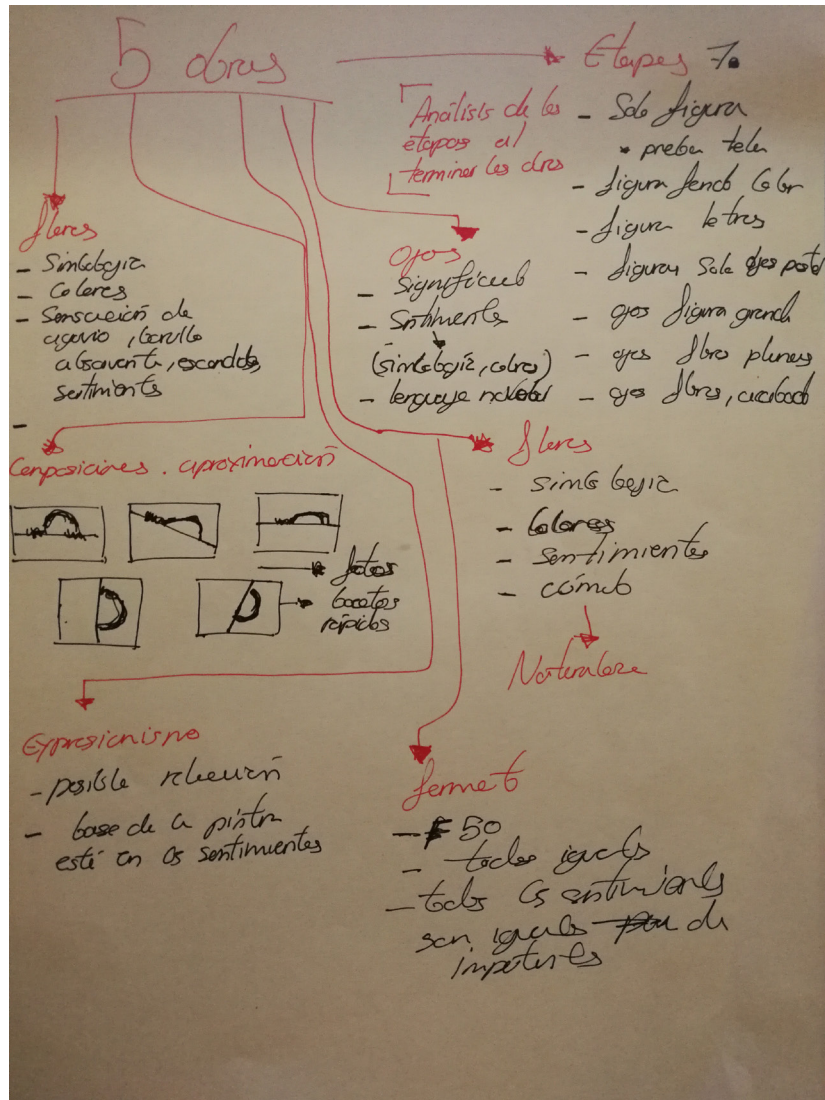 5 obras
Etapas 7.
Análisis de las
etapas al
terminar las obras
- Solo figura
• prueba tela
- figura fondo color
- figura letras
- figuras solo ojos
- ojos figura grande
- ojos flores
- ojos flores,
flores
- Simbología
- Colores
- Sensación de
agovio, barullo
sentimientos
-
Ojos
- Significado
- Sentimientos
(simbología, colores)
- lenguaje no verbal
Composiciones. aproximación
fotos
bocetos
rápidos
flores
- simbología
- Colores
- sentimientos
- cómulo
Naturaleza
Expresionismo
- posible relación
- base de la pintura
está en los sentimientos
formato
- F 50
- todos iguales
- todos los sentimientos
son iguales de
importantes